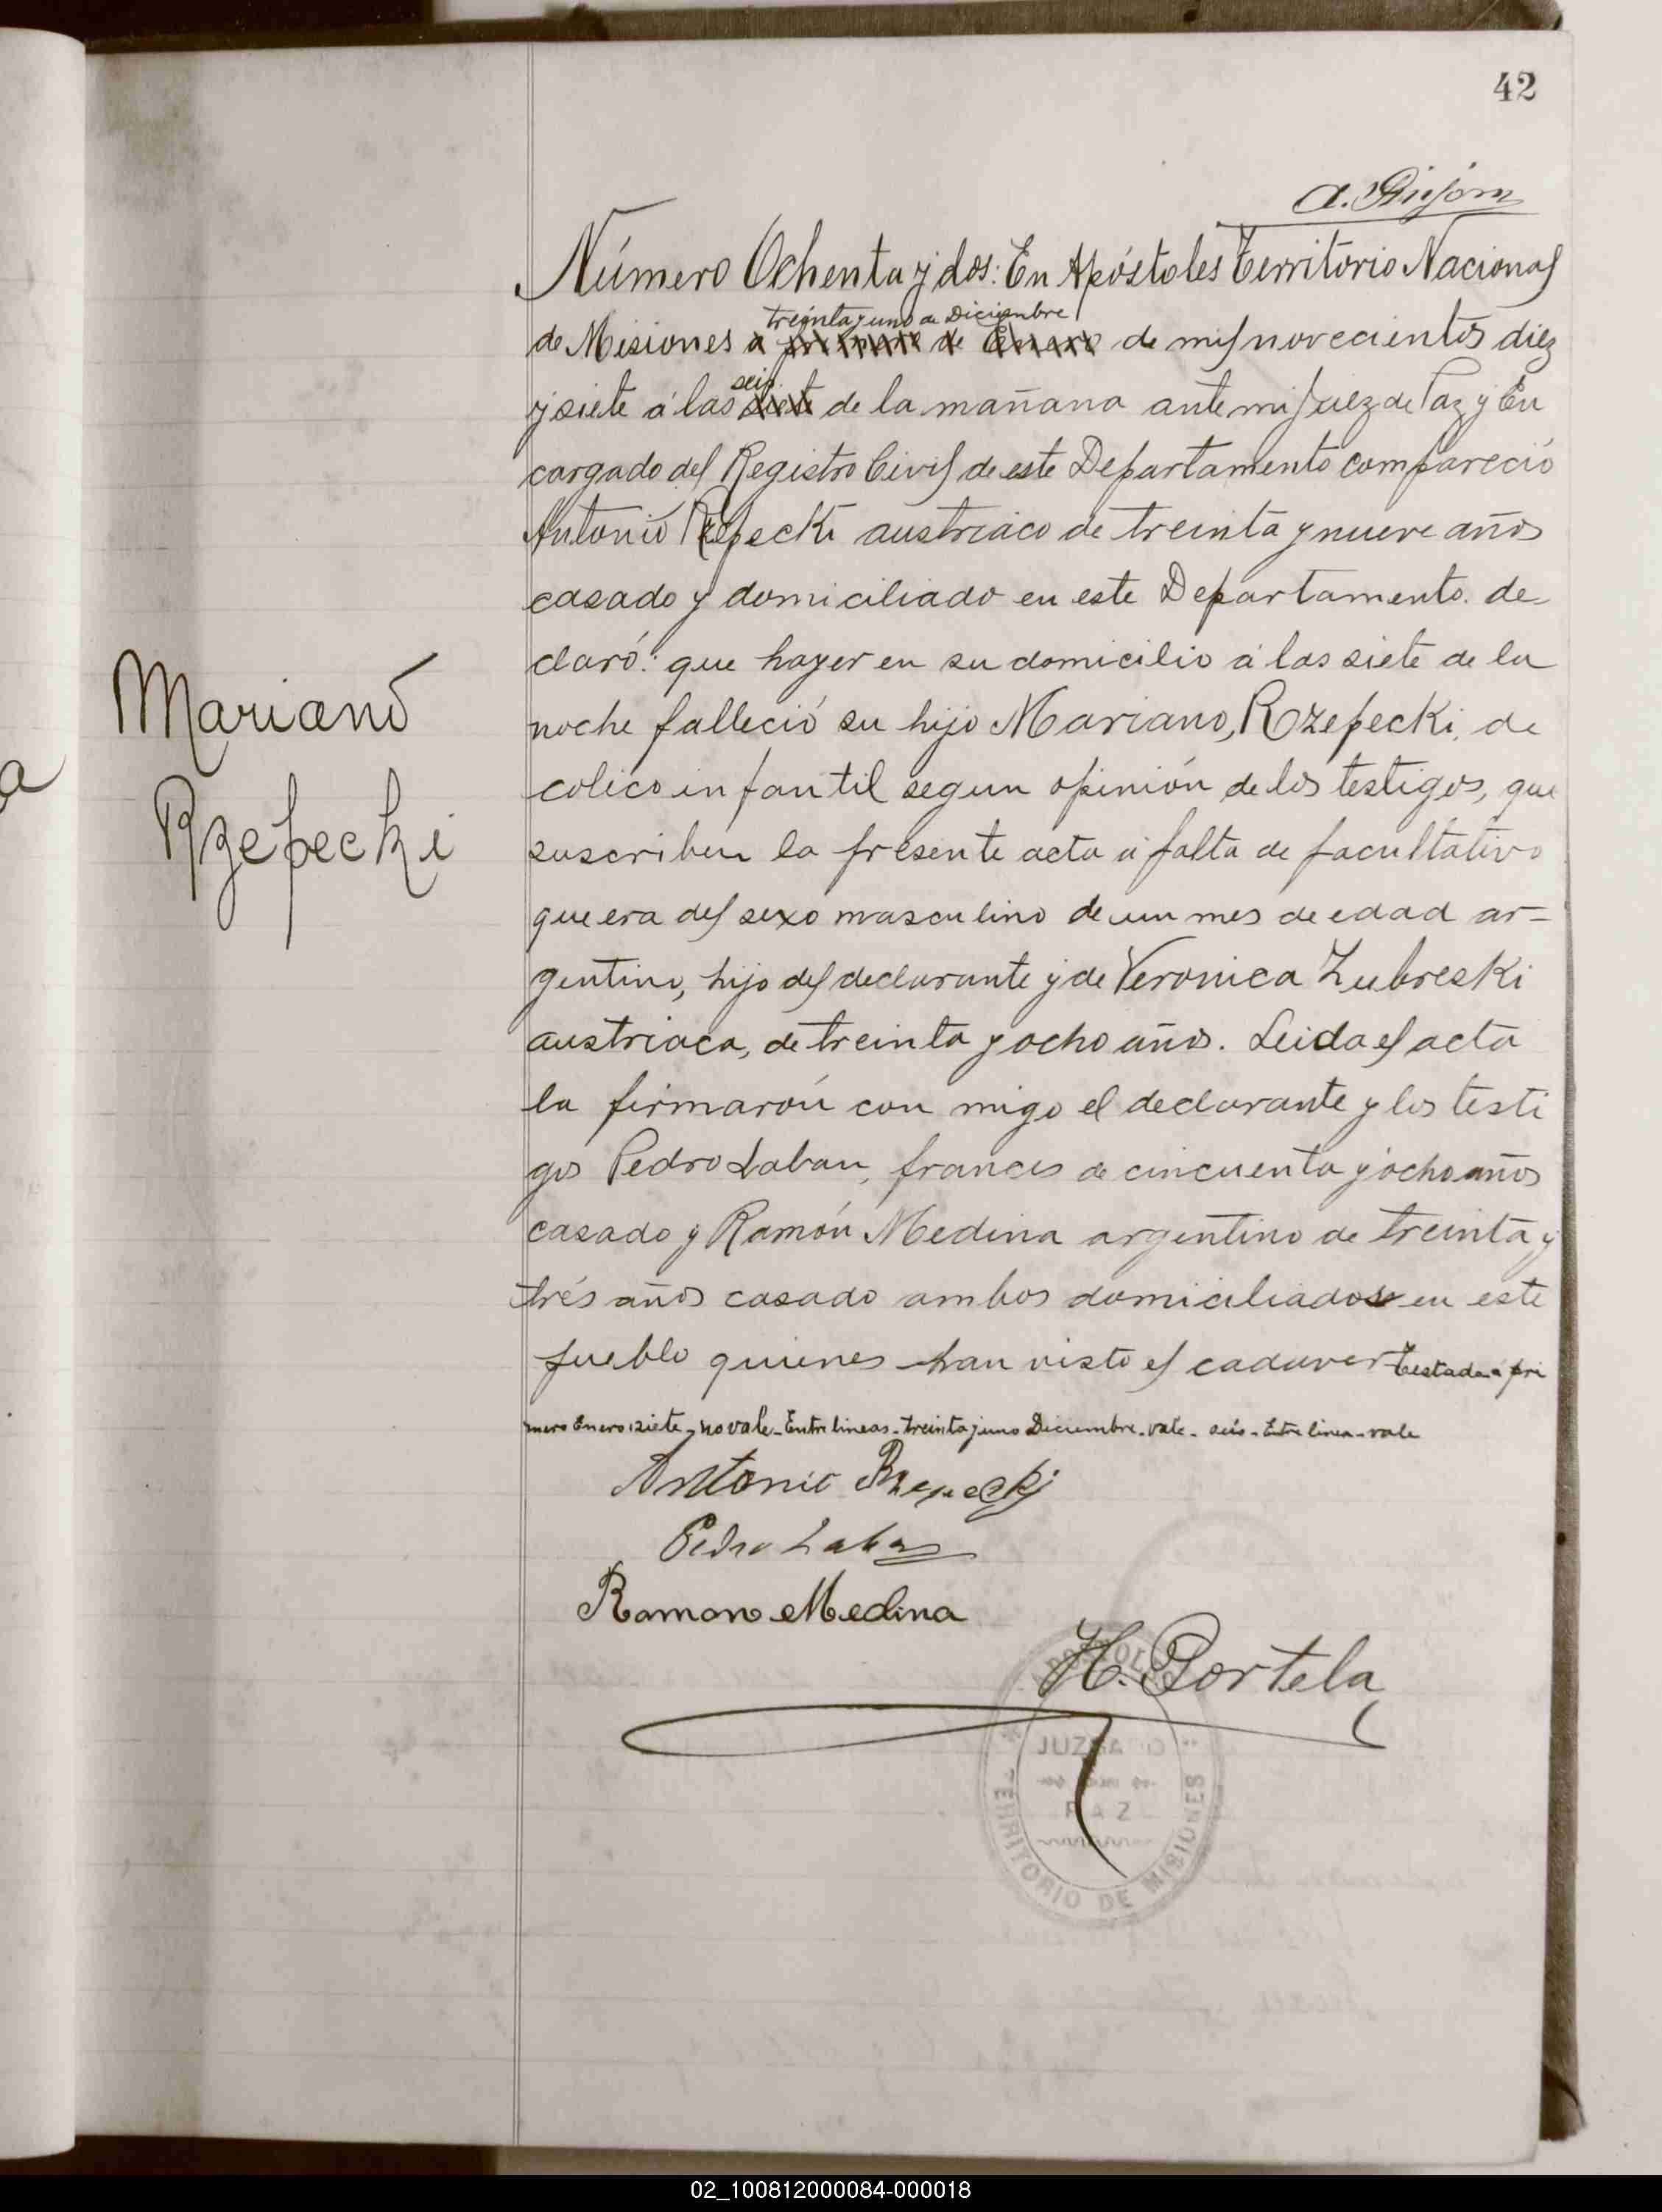 42
Número Ochenta y dos: En Apóstoles Territorio Nacional
treinta y uno de Diciembre
de Misiones a primero de Enero de mil novecientos diez
seis
y siete á las siete de la mañana ante mi Juez de Paz y En
cargado del Registro Civil de este Departamento compareció
Antonio Rzepecki austriaco de treinta y nueve años
casado y domiciliado en este Departamento. de-
claró: que hayer en su domicilio á las siete de la
noche falleció su hijo Mariano, Rzepecki, de
colico infantil segun opinión de los testigos, que
suscriben la presente acta á falta de facultativo
que era del sexo masculino de un mes de edad ar=
gentino, hijo del declarante y de Veronica Zubreski
austriaca, de treinta y ocho años. Leida el acta
la firmarón con migo el declarante y los testi
gos Pedro Laban, frances de cincuenta y ocho años
casado y Ramón Medina argentino de treinta y
trés años casado ambos domiciliados en este
pueblo quienes han visto el cadaver Testado a pri
mero Enero siete - no vale - Entre lineas - treinta y uno Diciembre - vale - seis - Entre linea - vale
Mariano
Rzepecki
a
Antonio Rzepecki
Pedro Laban
Ramon Medina
H. Portela
JUZGADO
PAZ
TERRITORIO DE MISIONES
02_100812000084-000018